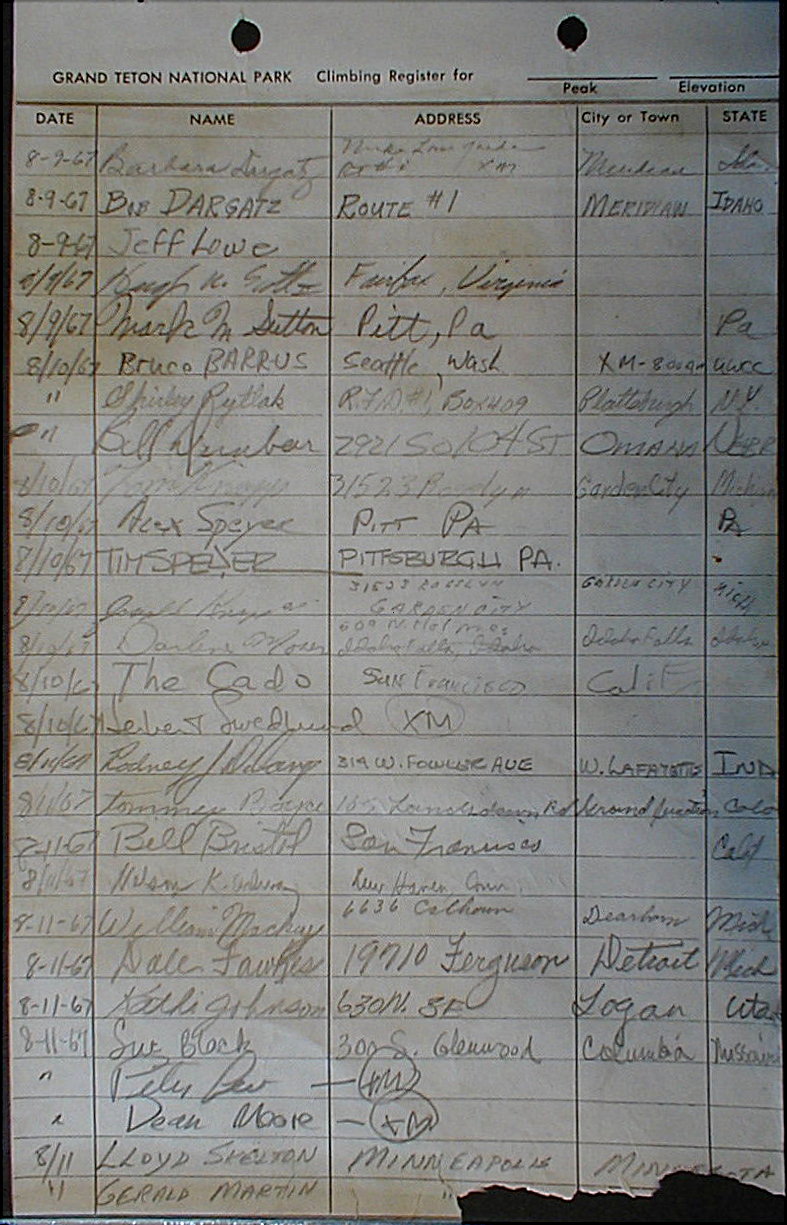 GRAND TETON NATIONAL PARK Climbing Register for
Peak Elevation
DATE NAME ADDRESS City or Town STATE
8-9-67 Barbara Dargatz Rt #1 XM Meridian Ida.
8-9-67 BOB DARGATZ ROUTE #1 MERIDIAN IDAHO
8-9-67 Jeff Lowe
8/9/67 Fairfax, Virginia
8/9/67 Mark M Sutton Pitt, Pa Pa
8/10/67 Bruce BARRUS Seattle, Wash XM- UWCC
" Shirley Rytlak R.F.D.#1, Box 409 Plattsburgh N.Y.
" Bill Dunbar 2921 SO 104 ST OMAHA NEBR
8/10/67 Tom Knapp 31523 Rosslyn Garden City Michigan
8/10/67 Alex Speyer PITT PA PA
8/10/67 TIM SPEYER PITTSBURGH PA.
31523 ROSSLYN GARDEN CITY MICH
8/10/67 Knapp GARDEN CITY
609 N. Holmes
8/10/67 Darlene Idaho Falls, Idaho Idaho Falls Idaho
8/10/67 The Cado SAN FRANCISCO Calif
8/10/67 Swedlund XM
8/11/67 Rodney J 314 W. FOWLER AVE W. LAFAYETTE IND
8/11/67 Tommy Pierce Rd Grand Junction Colo
8-11-67 Bill Bristol San Francisco Calif
8/11/67 Nelson K. New Haven, Conn.
8-11-67 William Mackay 6636 Calhoun Dearborn Mich
8-11-67 Dale Fawkes 19710 Ferguson Detroit Mich
8-11-67 Kathi Johnson 630 N. 3E Logan Utah
8-11-67 Sue Black 300 S. Glenwood Columbia Missouri
" Peter — XM
" Dean Moore — XM
8/11 LLOYD SKELTON MINNEAPOLIS MINNESOTA
" GERALD MARTIN "